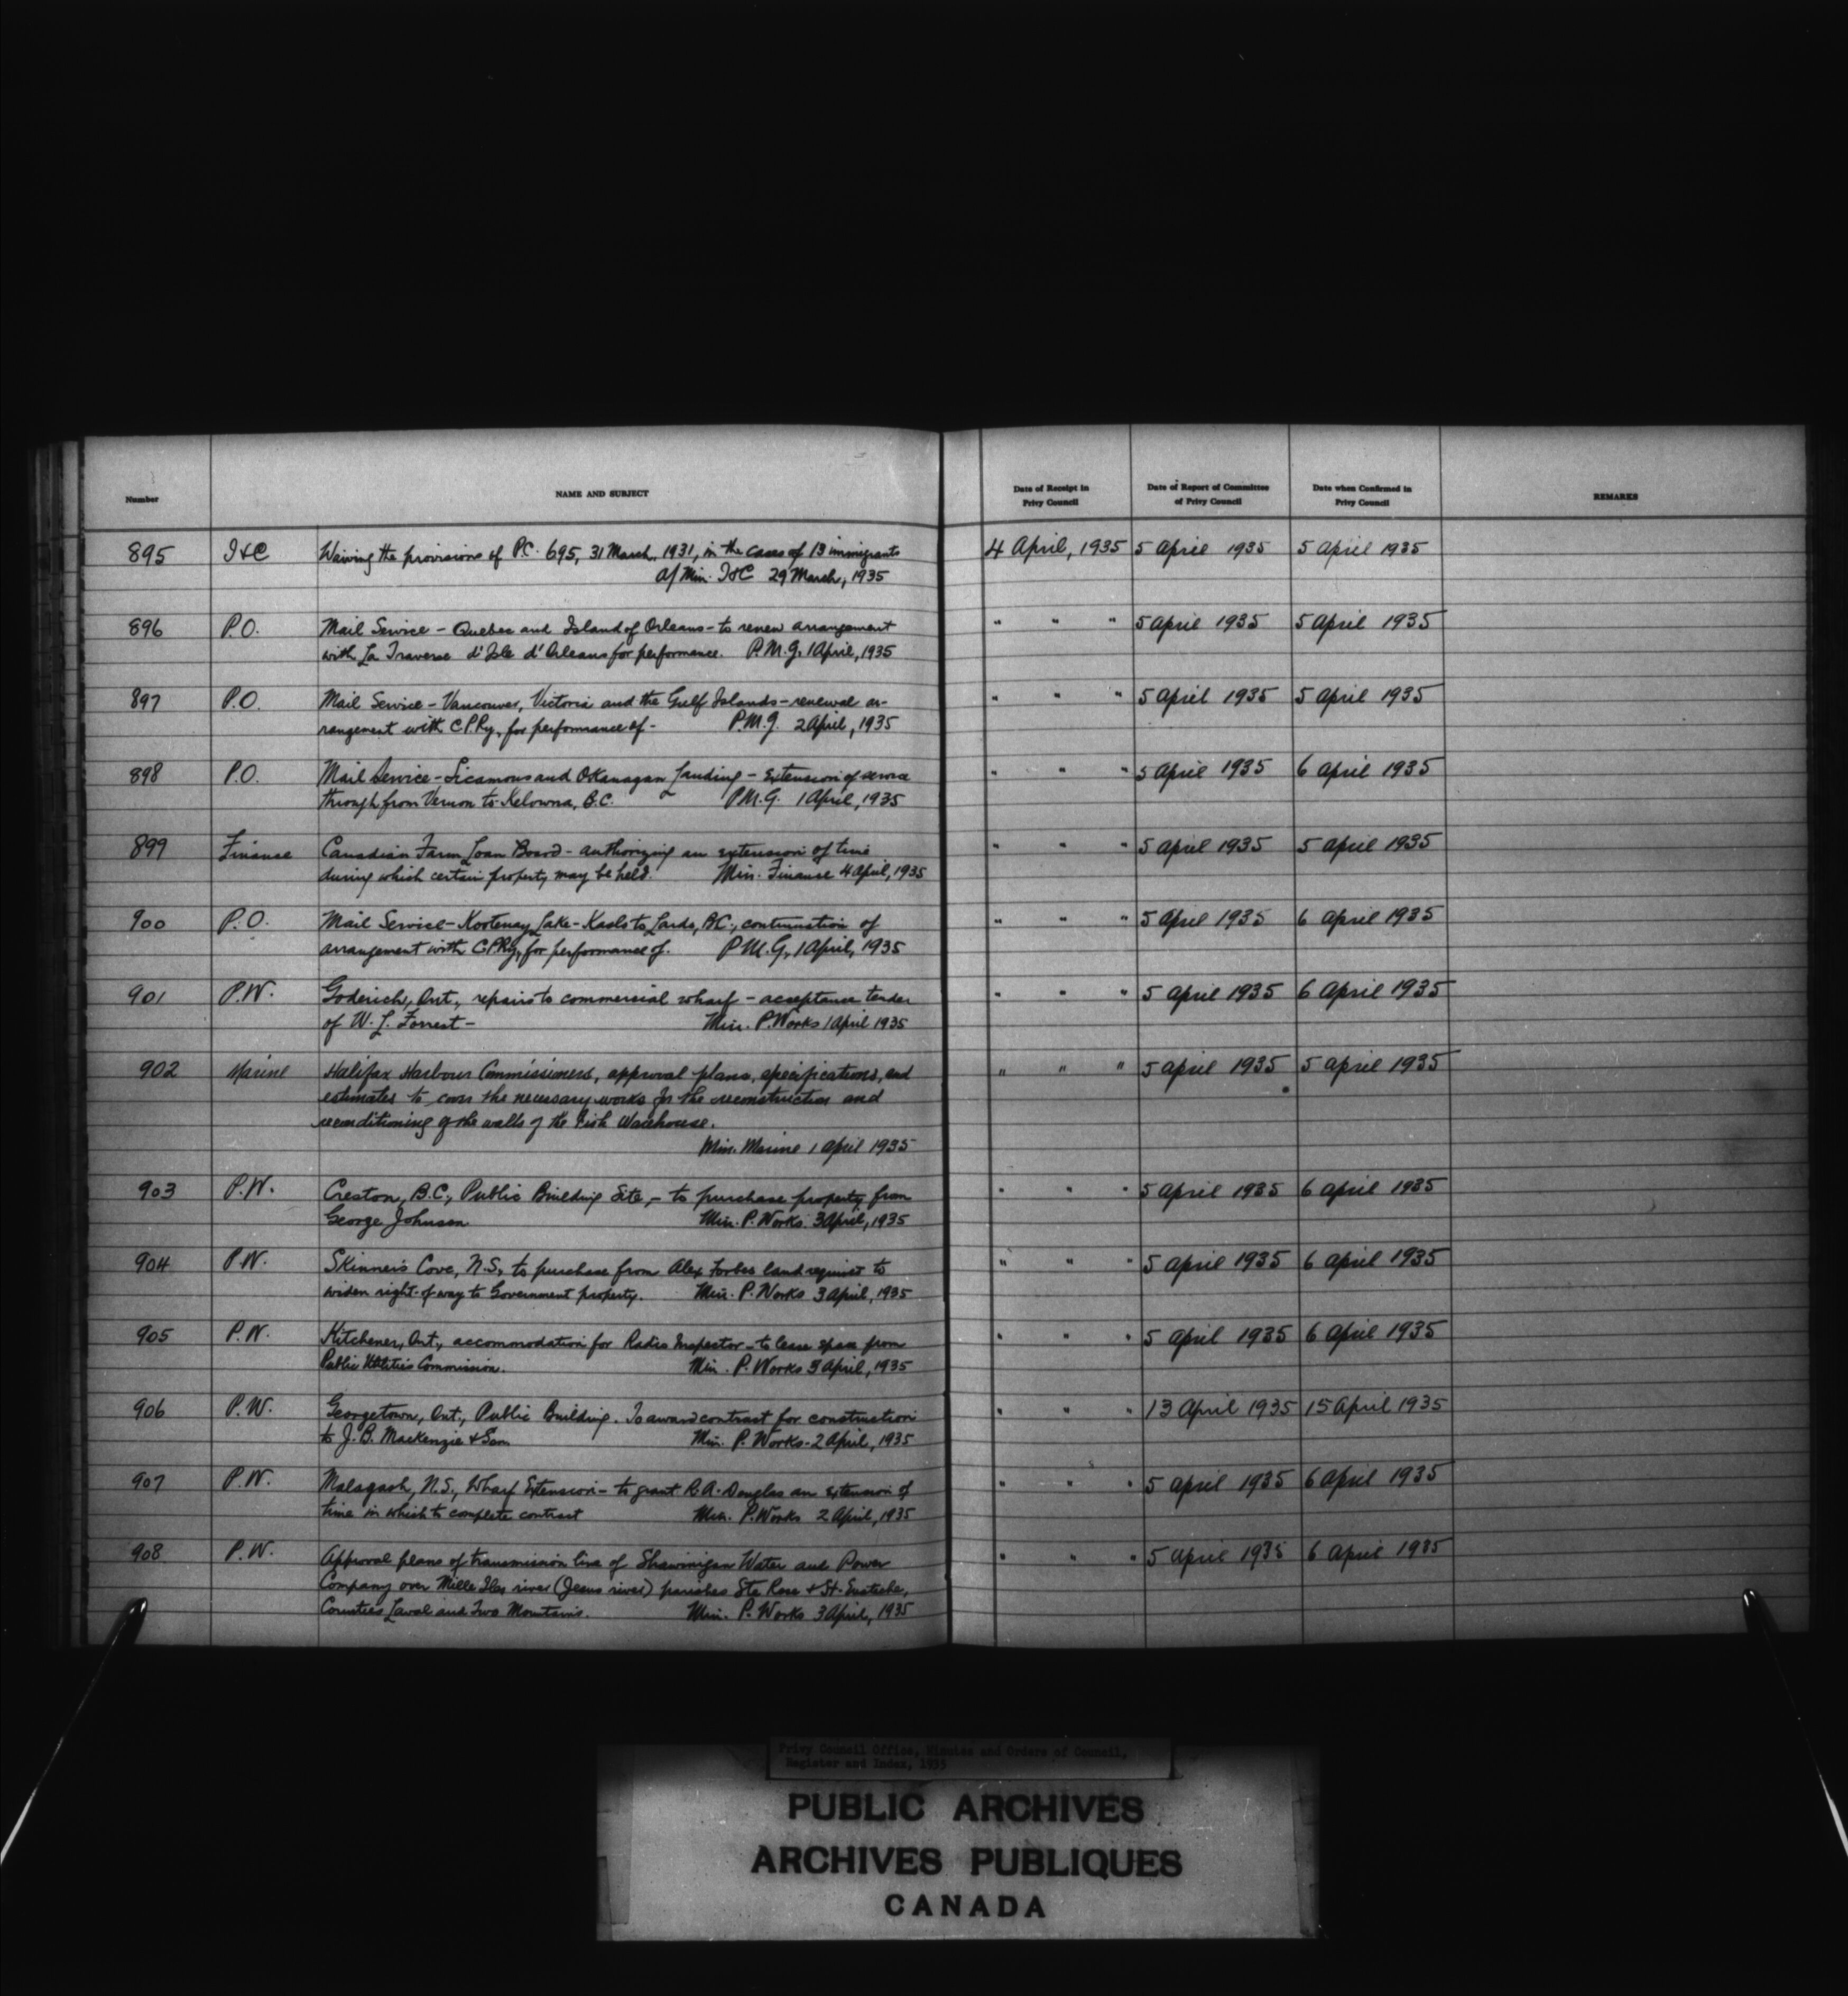 Number NAME AND SUBJECT Date of Receipt in Privy Council Date of Report of Committee of Privy Council Date when Confirmed in Privy Council REMARKS
895 I&C Waiving the provisions of P.C. 695, 31 March, 1931, in the cases of 13 immigrants 4 April, 1935 5 April 1935 5 April 1935
A/Min. I&C 29 March, 1935
896 P.O. Mail Service - Quebec and Island of Orleans - to renew arrangement " " " 5 April 1935 5 April 1935
with La Traverse d'Isle d'Orleans for performance. P.M.G. 1 April, 1935
897 P.O. Mail Service - Vancouver, Victoria and the Gulf Islands - renewal ar- " " " 5 April 1935 5 April 1935
rangement with C.P.Ry. for performance of - P.M.G. 2 April, 1935
898 P.O. Mail Service - Sicamous and Okanagan Landing - Extension of service " " " 5 April 1935 6 April 1935
through from Vernon to Kelowna, B.C. P.M.G. 1 April, 1935
899 Finance Canadian Farm Loan Board - authorizing an extension of time " " " 5 April 1935 5 April 1935
during which certain property may be held. Min. Finance 4 April, 1935
900 P.O. Mail Service - Kootenay Lake - Kaslo to Lardo, B.C., continuation of " " " 5 April 1935 6 April 1935
arrangement with C.P.Ry. for performance of. P.M.G. 1 April, 1935
901 P.W. Goderich, Ont., repairs to commercial wharf - acceptance tender " " " 5 April 1935 6 April 1935
of W. L. Forrest - Min. P. Works 1 April 1935
902 Marine Halifax Harbour Commissioners, approval plans, specifications, and " " " 5 April 1935 5 April 1935
estimates to cover the necessary works for the reconstruction and
reconditioning of the walls of the Fish Warehouse.
Min. Marine 1 April 1935
903 P.W. Creston, B.C., Public Building Site, - to purchase property from " " " 5 April 1935 6 April 1935
George Johnson Min. P. Works. 3 April, 1935
904 P.W. Skinner's Cove, N.S., to purchase from Alex Forbes land required to " " " 5 April 1935 6 April 1935
widen right-of-way to Government property. Min. P. Works 3 April, 1935
905 P.W. Kitchener, Ont., accommodation for Radio Inspector - to lease space from " " " 5 April 1935 6 April 1935
Public Utilities Commission. Min. P. Works 3 April, 1935
906 P.W. Georgetown, Ont., Public Building. To award contract for construction " " " 13 April 1935 15 April 1935
to J. B. Mackenzie & Son Min. P. Works - 2 April, 1935
907 P.W. Malagash, N.S., Wharf Extension - to grant R.A. Douglas an extension of " " " 5 April 1935 6 April 1935
time in which to complete contract Min. P. Works 2 April, 1935
908 P.W. Approval plans of transmission line of Shawinigan Water and Power " " " 5 April 1935 6 April 1935
Company over Mille Iles river (Jesus river) parishes Ste Rose & St. Eustache,
Counties Laval and Two Mountains. Min. P. Works 3 April, 1935
Privy Council Office, Minutes and Orders of Council,
Register and Index, 1935
PUBLIC ARCHIVES
ARCHIVES PUBLIQUES
CANADA